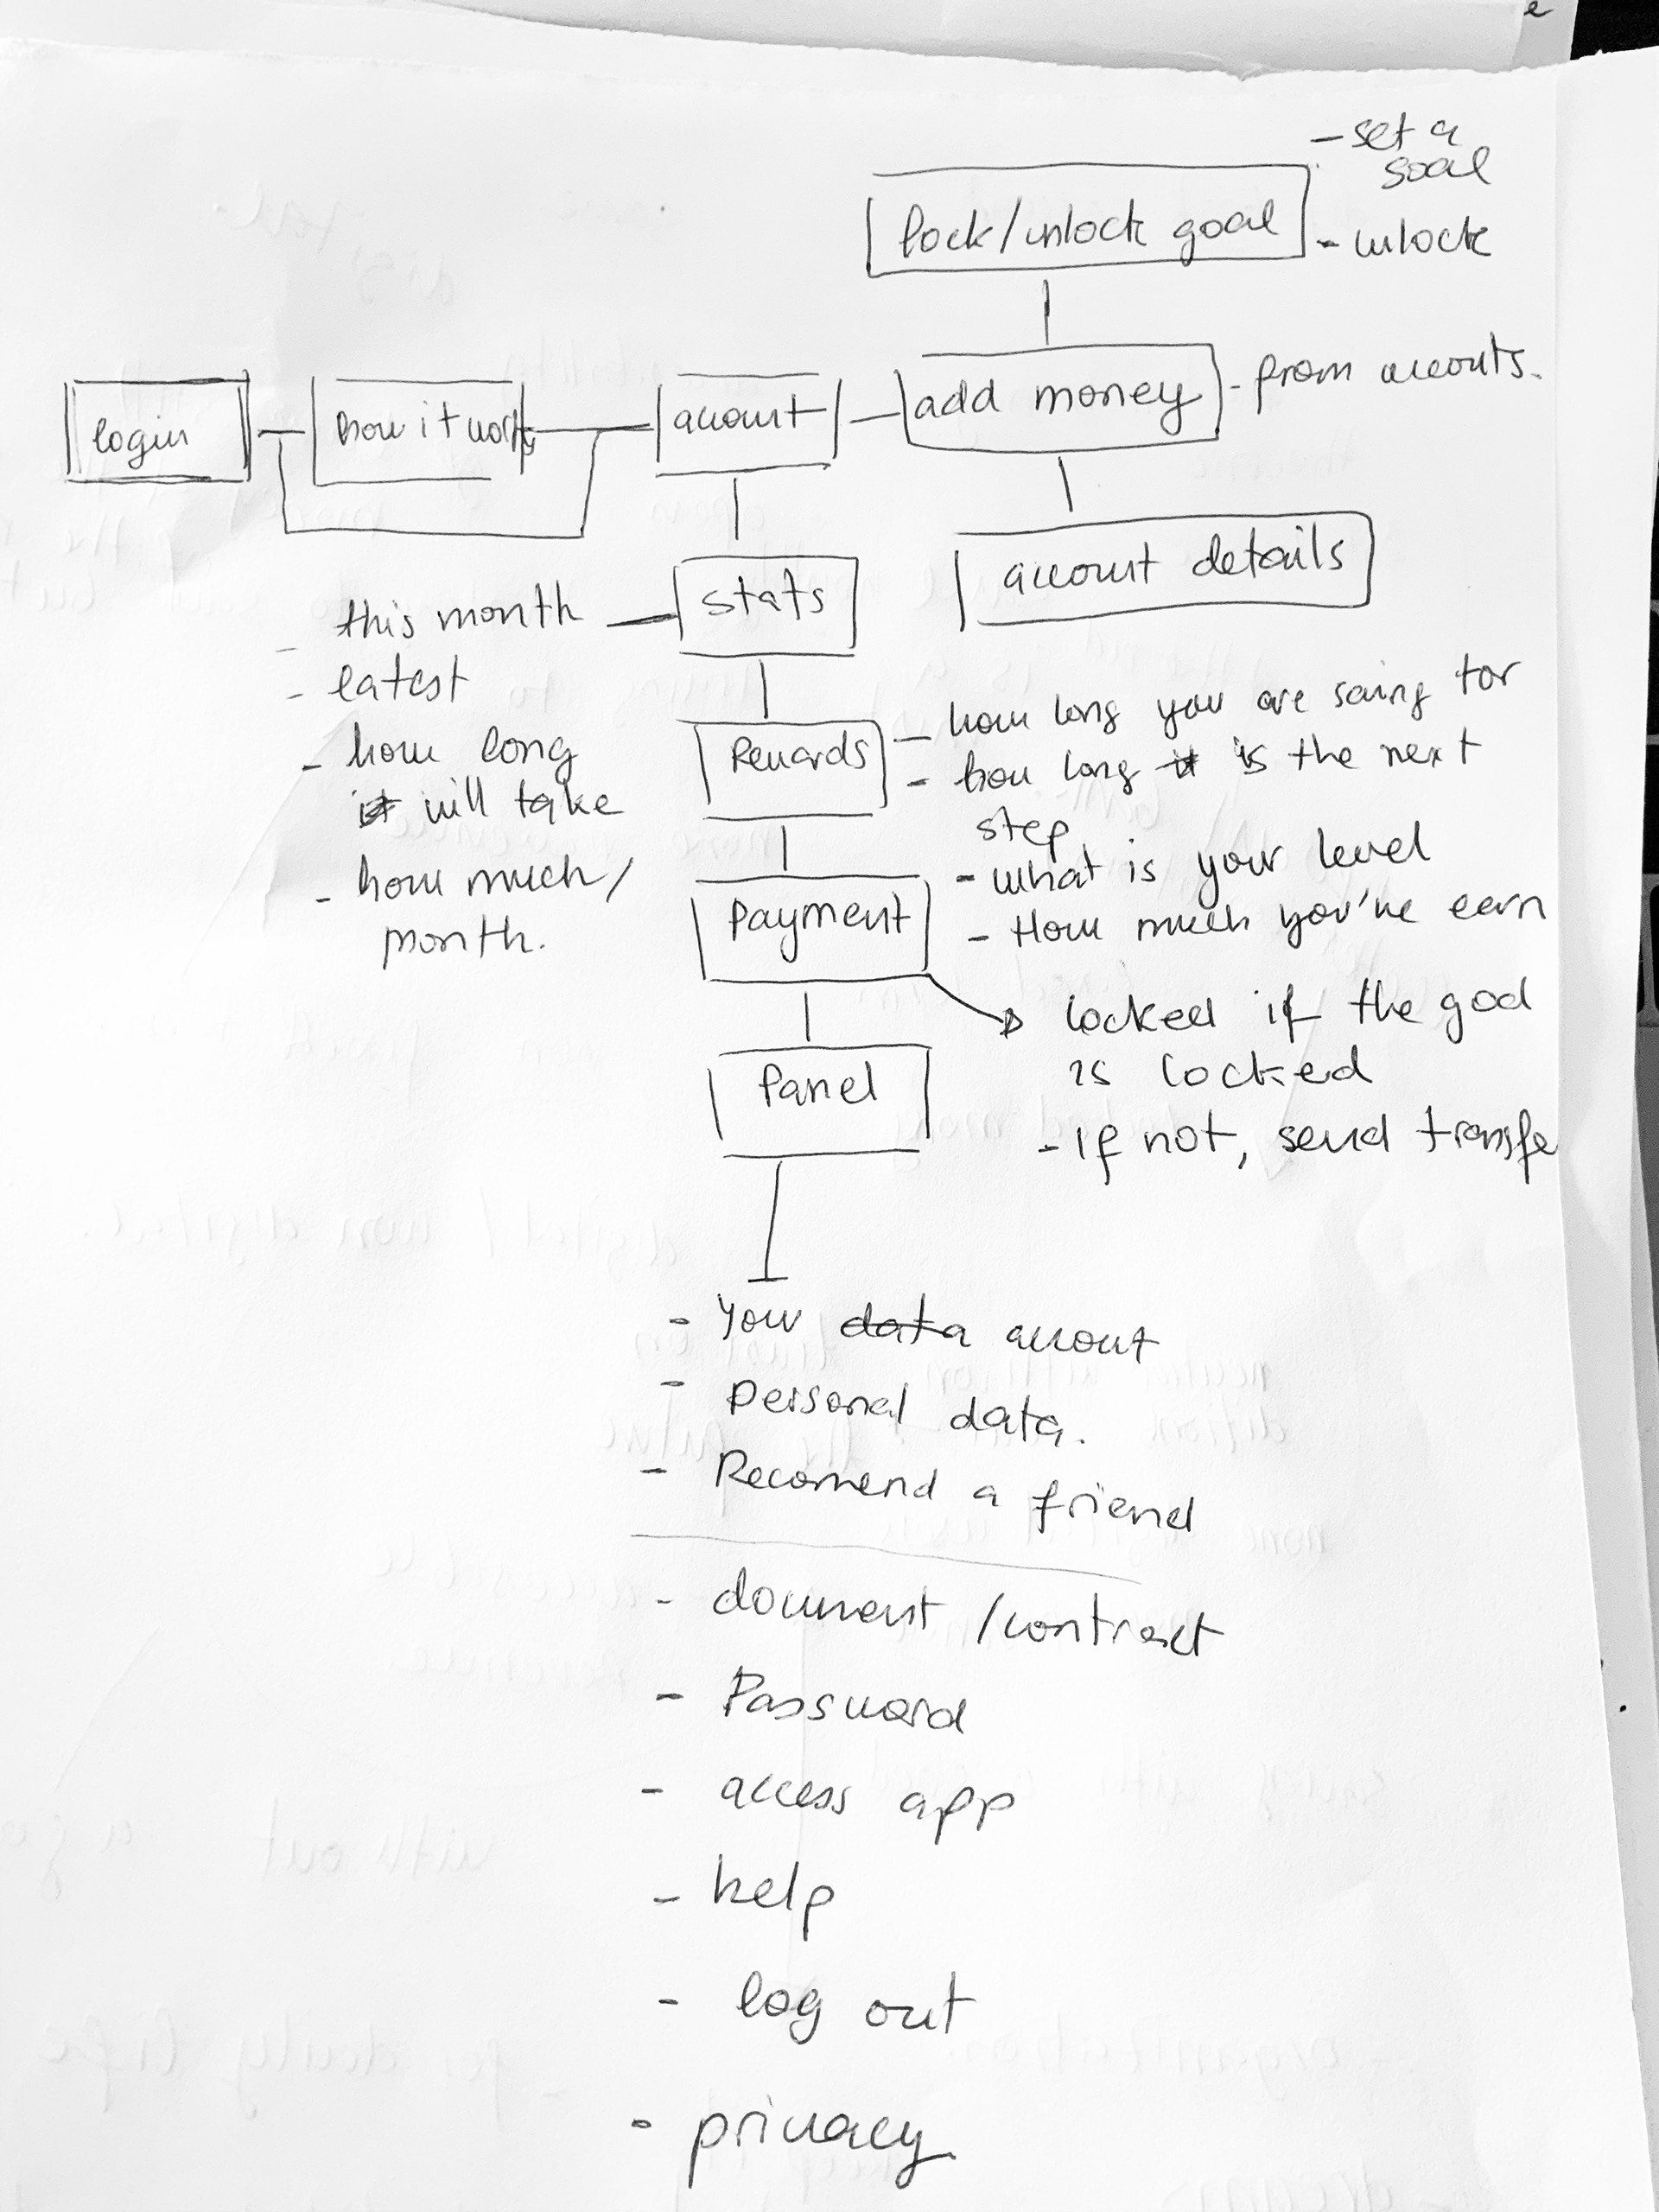 - set a
goal
lock/unlock goal
- unlock
login
how it works
account
add money
- from accouts.
account details
stats
- this month
- latest
- how long
it will take
- how much/
month.
Rewards
- how long you are saving for
- how long it is the next
step
- what is your level
- How much you've earn
Payment
locked if the goal
is locked
- If not, send transfe
Panel
- Your data account
- Personal data.
- Recomend a friend
- document / contract
- Password
- access app
- help
- log out
- privacy